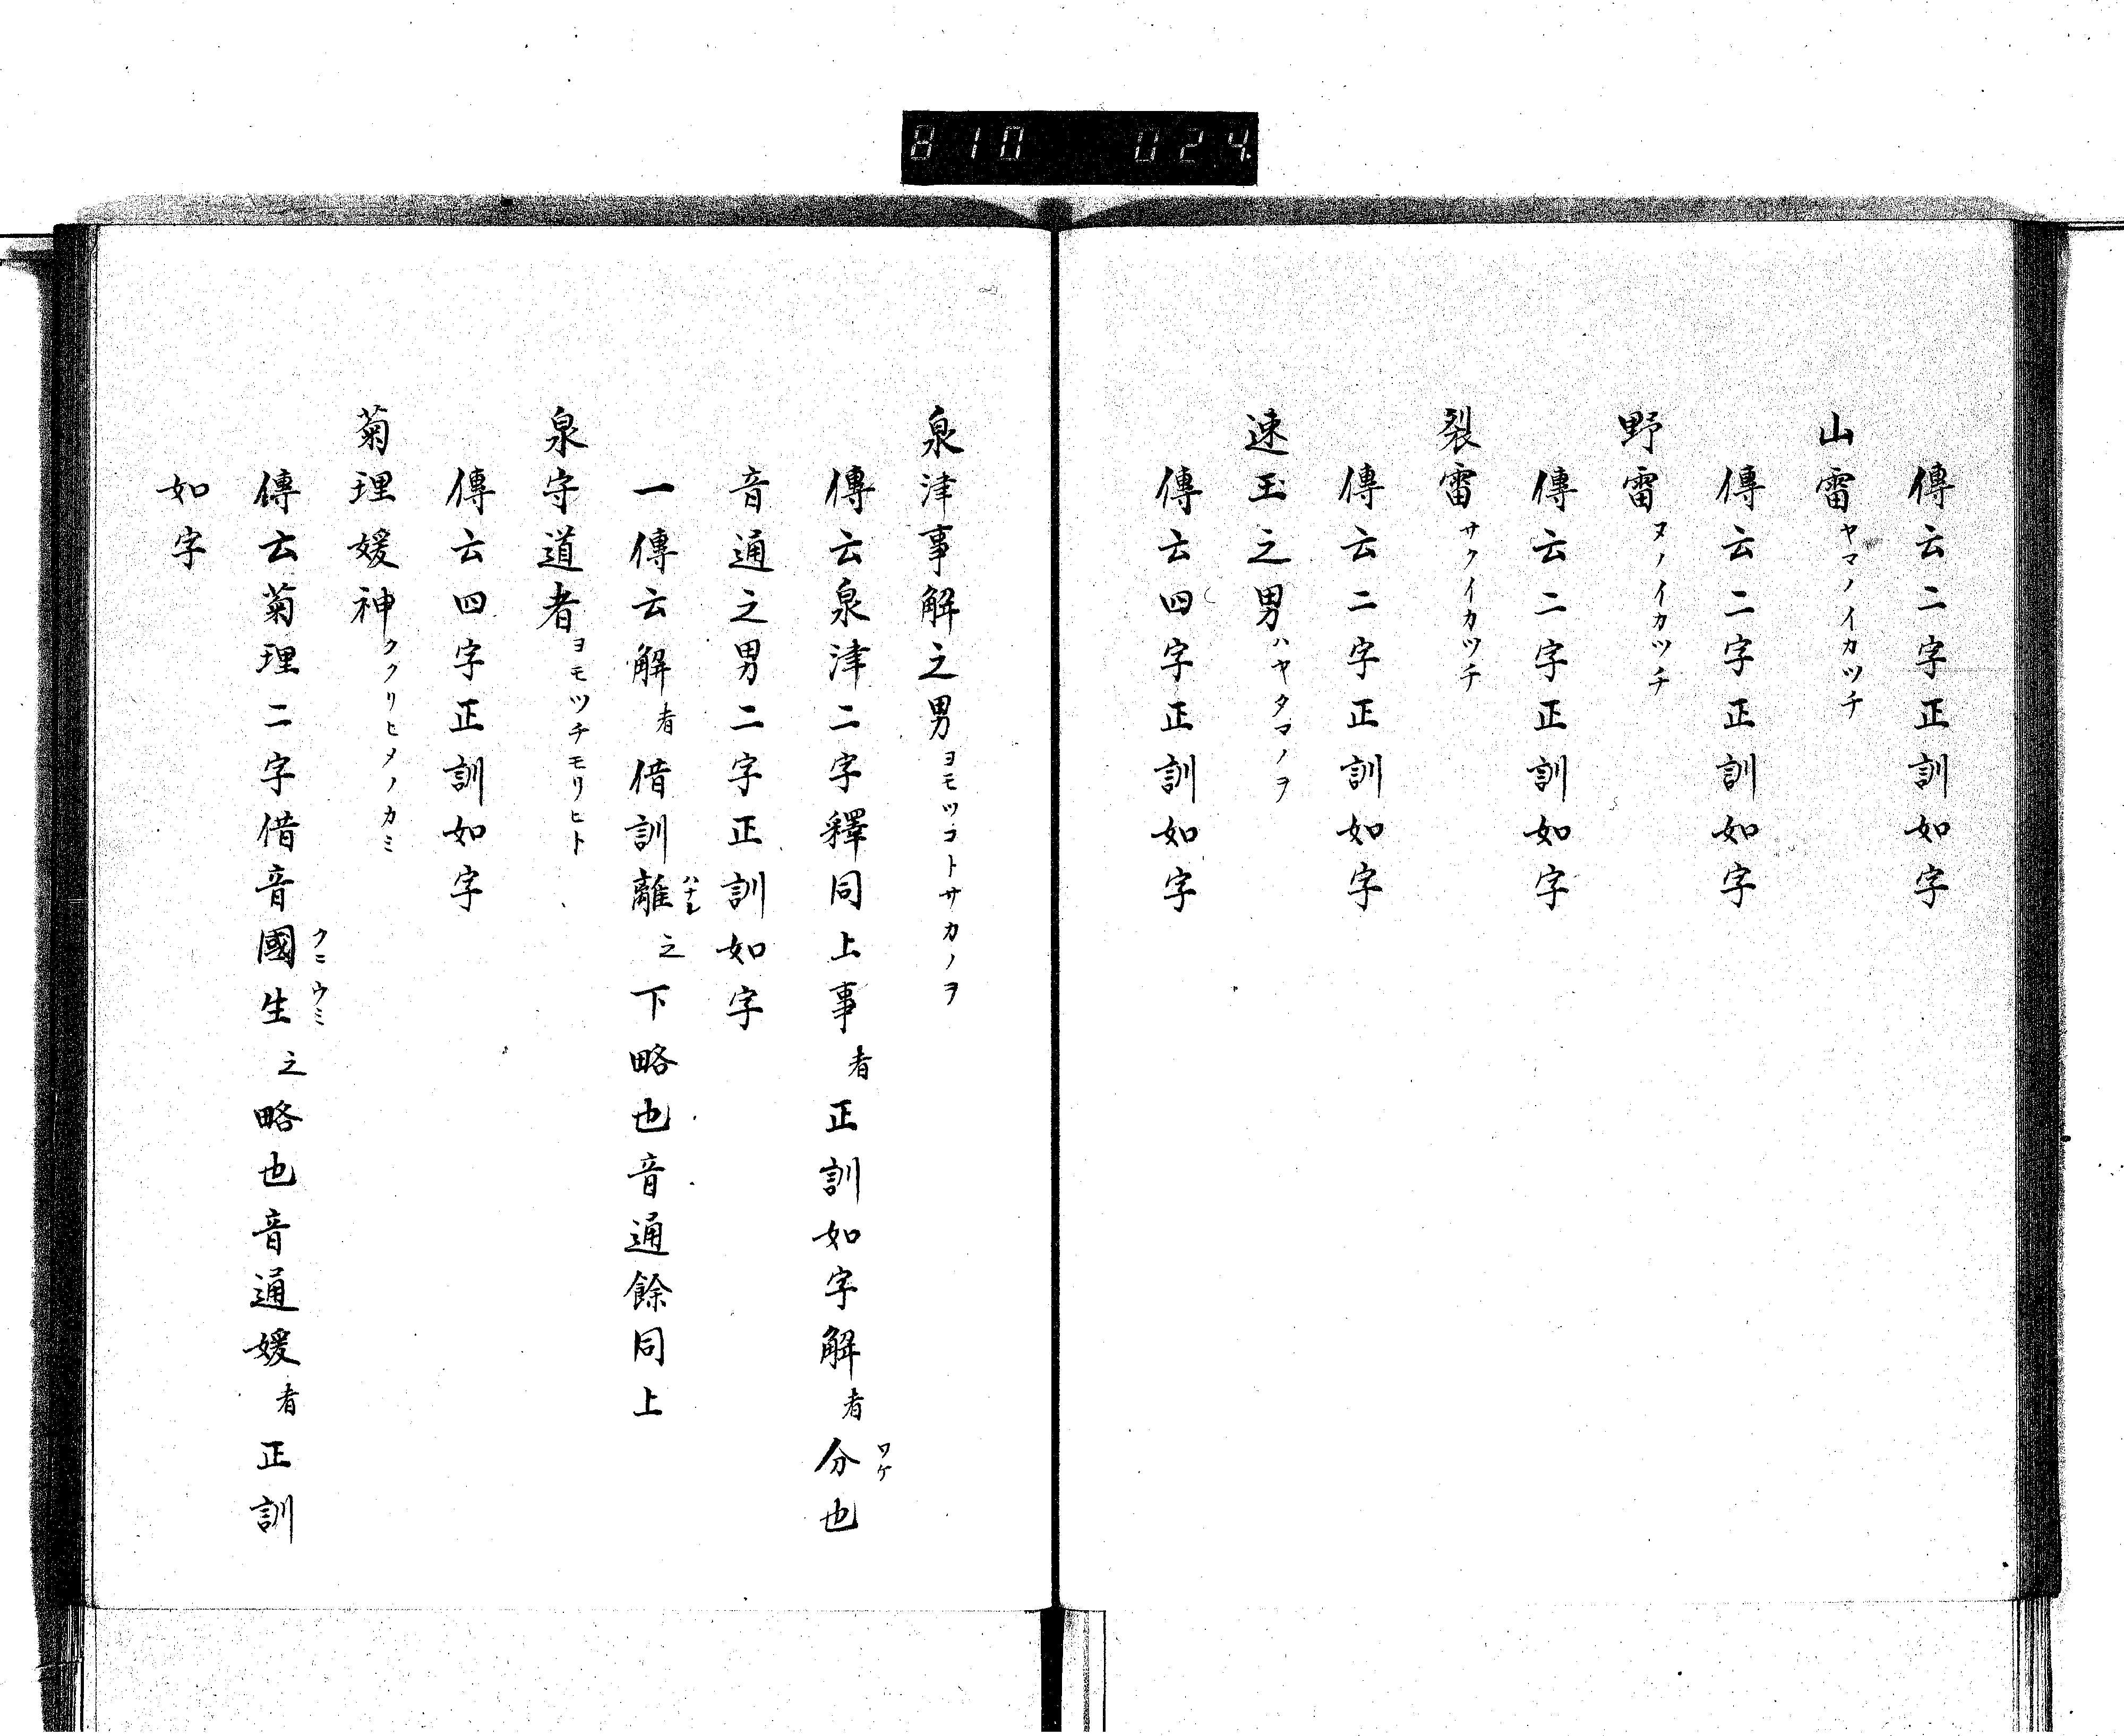 810 024
傳云二字正訓如字
山雷ヤマノイカツチ
傳云二字正訓如字
野雷ヌノイカツチ
傳云二字正訓如字
裂雷サクイカツチ
傳云二字正訓如字
速玉之男ハヤタマノヲ
傳云四字正訓如字
泉津事解之男ヨモツコトサカノヲ
傳云泉津二字釋同上事者正訓如字解者分ワケ也
音通之男二字正訓如字
一傳云解者借訓離ハナル之下略也音通餘同上
泉守道者ヨモツチモリヒト
傳云四字正訓如字
菊理媛神ククリヒメノカミ
傳云菊理二字借音國生クニウミ之略也音通媛者正訓
如字